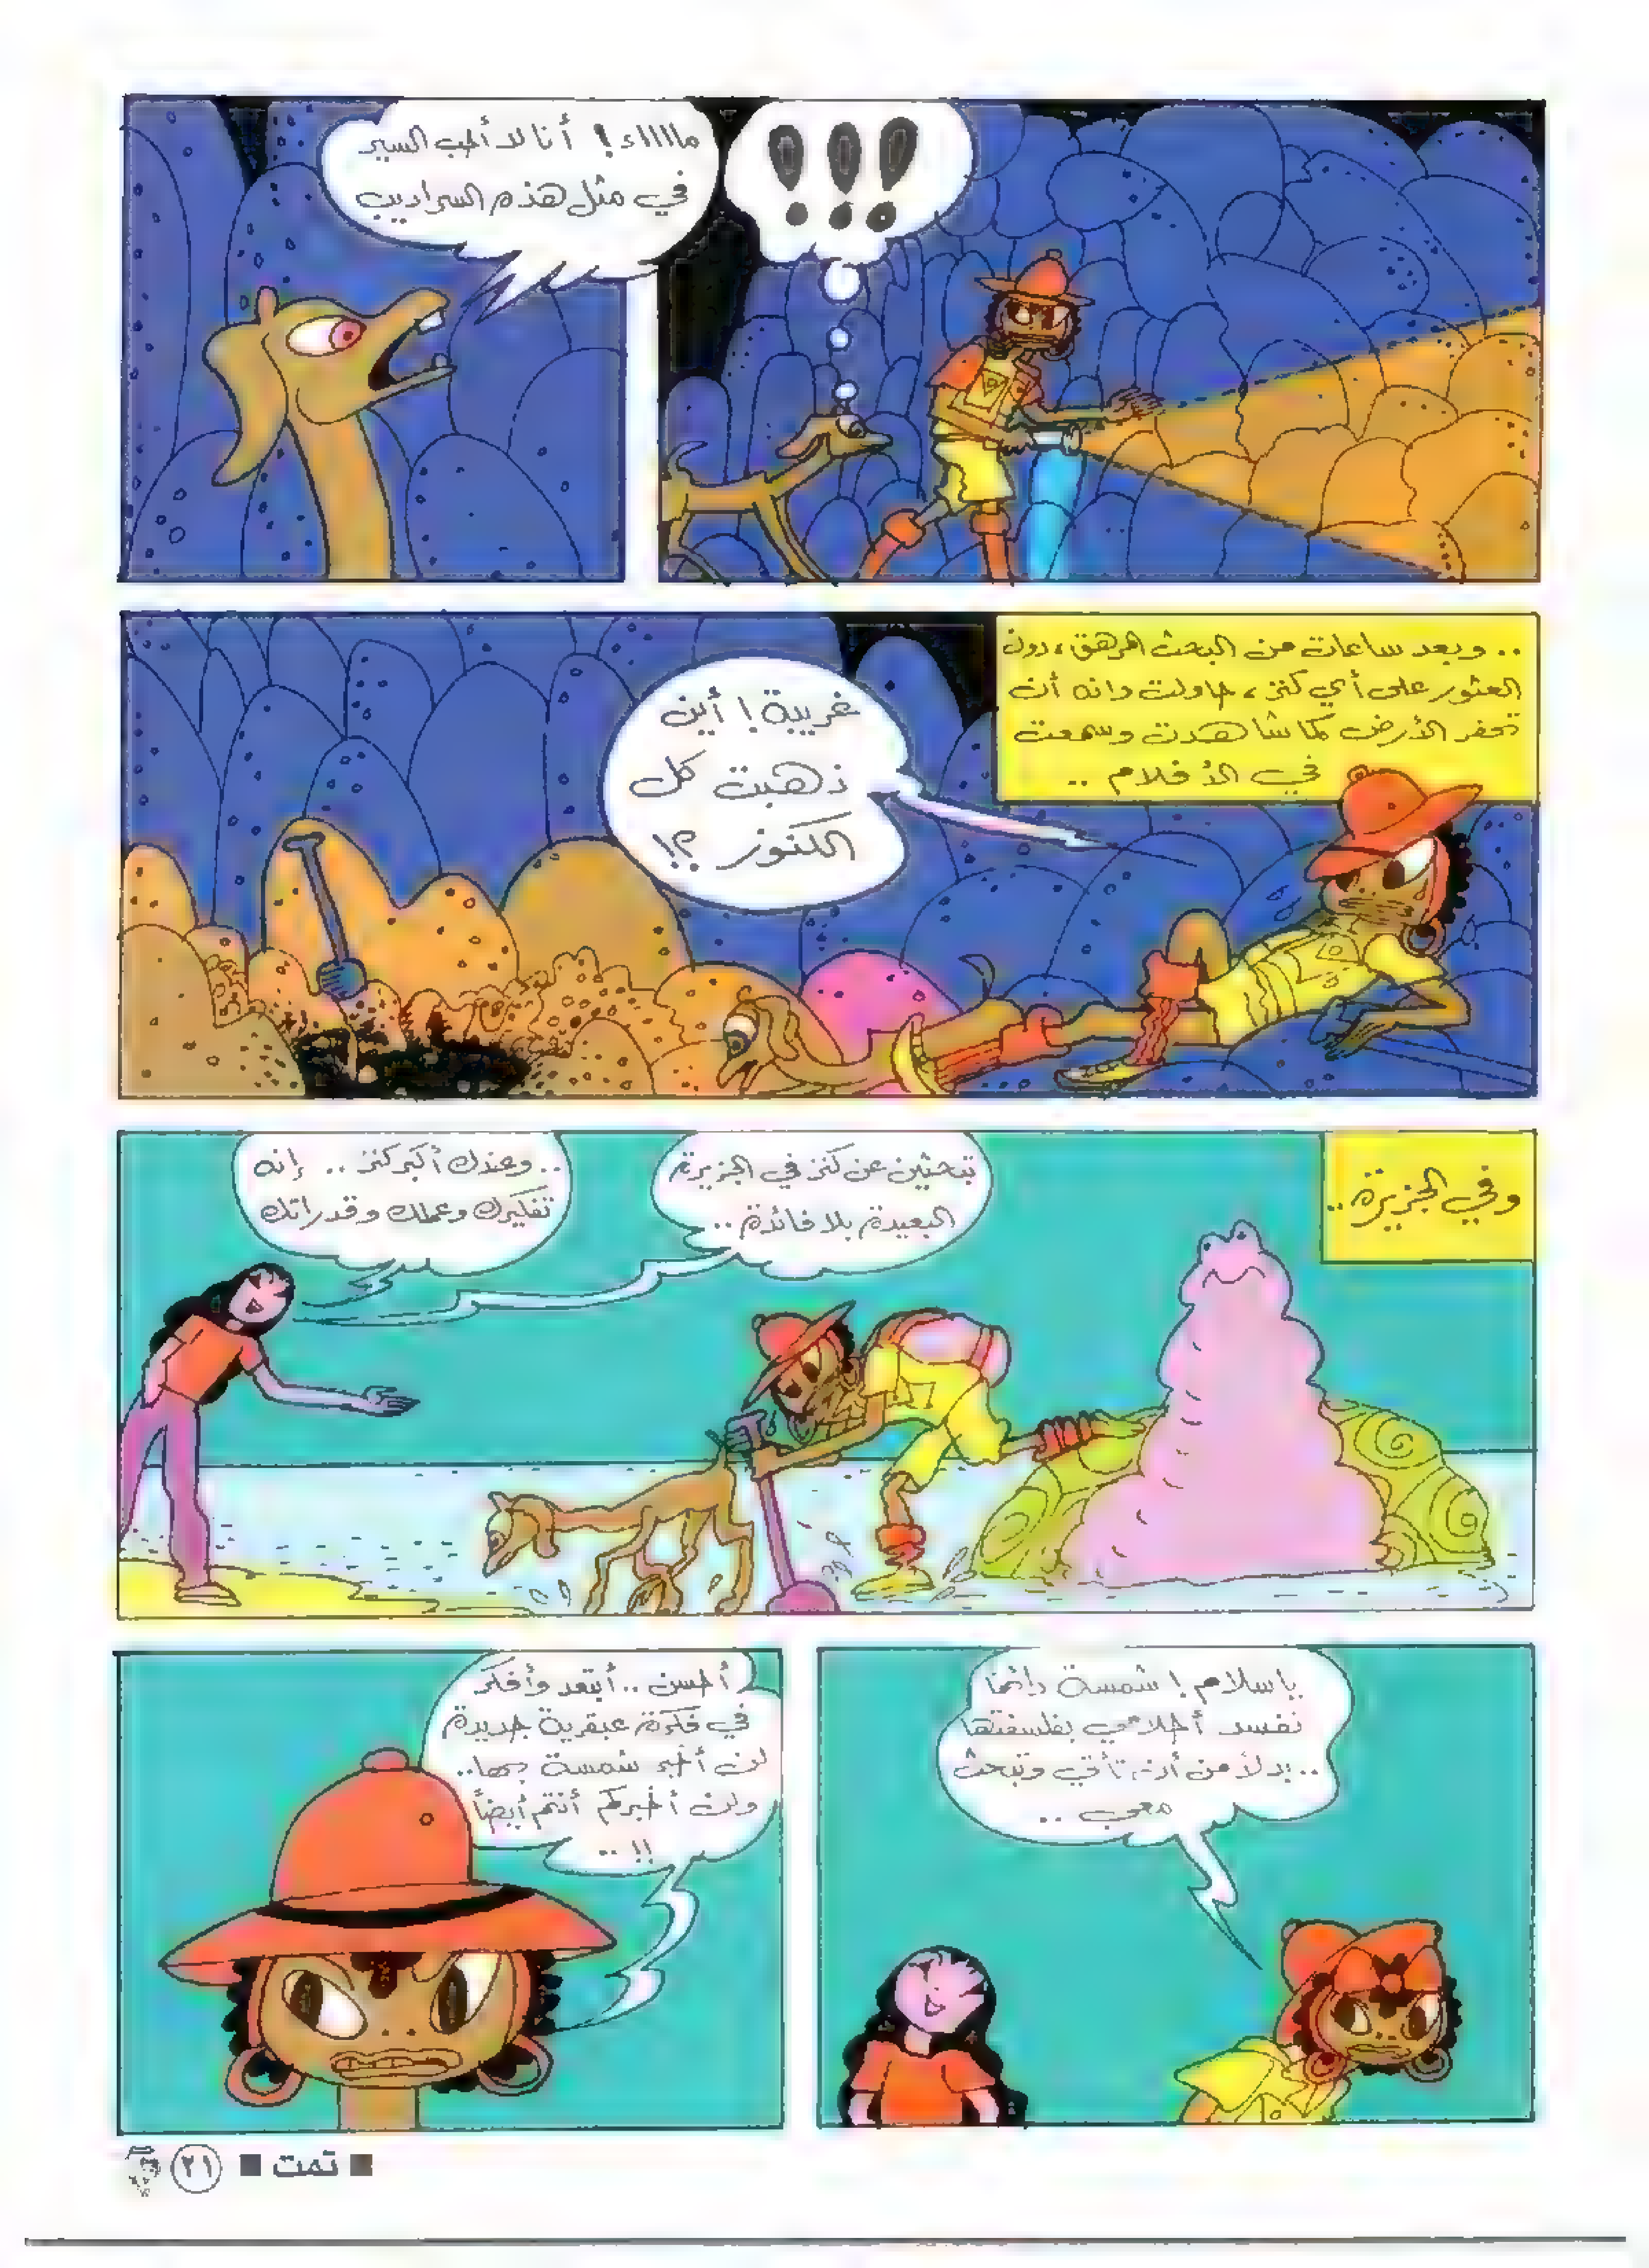 !!!
مااااء! أنا لا أحب السير
في مثل هذه السراديب
.. وبعد ساعات من البحث المرهق، دون
العثور على أي كنز، حاولت دانه أن
تحفر الأرض كما شاهدت وسمعت
في الأفلام ..
غريبة! أين
ذهبت كل
الكنوز؟!
وفي الجزيرة..
تبحثين عن كنز في الجزيرة
البعيدة بلا فائدة..
.. وعندك أكبر كنز .. إنه
تفكيرك وعملك وقدراتك
ياسلام! شمسة دائما
تفسد أحلامي بفلسفتها
.. بدلاً من أن تأتي وتبحث
معي ..
أحسن .. أبتعد وأفكر
في فكرة عبقرية جديدة
لن أخبر شمسة بها..
ولن أخبركم أنتم أيضاً
!! ..
■ تمت ■ ٢١